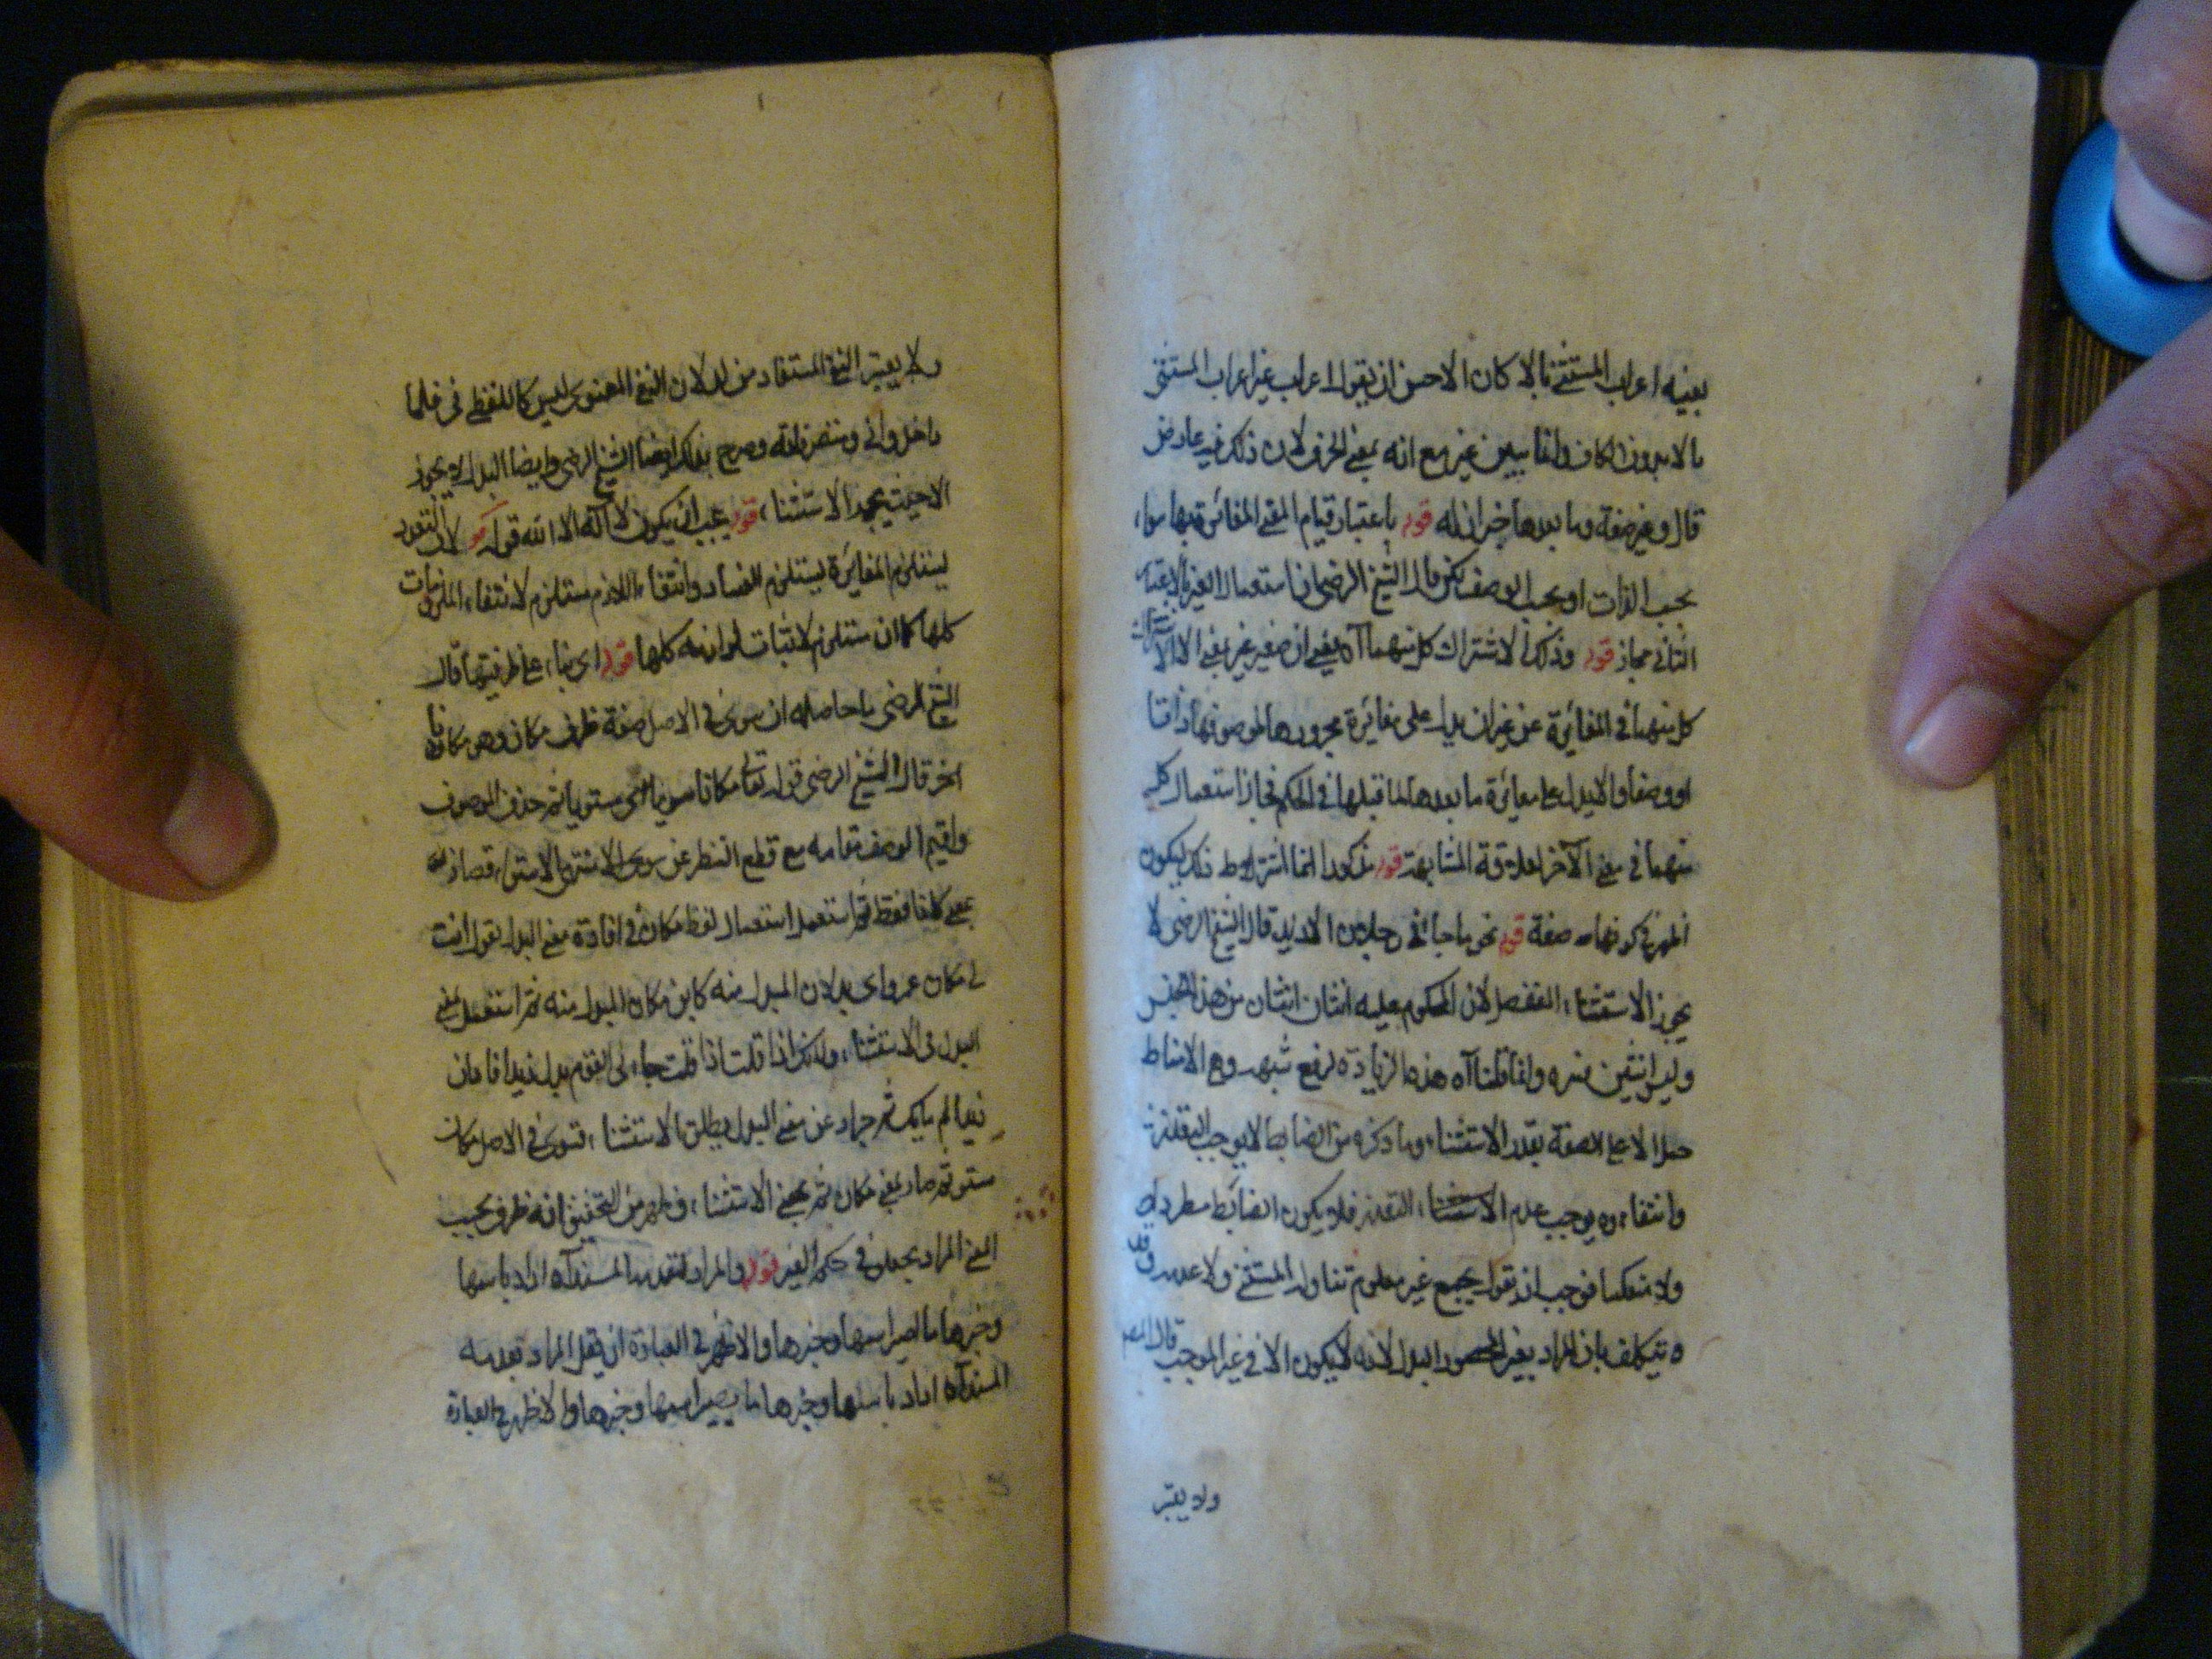 بعينه اعراب المستثنى بالا كان الاحسن ان يقول اعراب غير اعراب المستثنى
بالا بدون الكاف وانما يبين غير مع انه بمعنى الحرف لان ذلك فيه عارض
قال وغير صفة وما بعدها خبران له قوله باعتبار قيام المعنى المغائرة بها سواء
بحسب الذات او بحسب الوصف لكن قال الشيخ الرضى ان استعمال الغير بالاعتبار
الثانى مجاز قوله وذلك لاشتراك كل منهما آه يعنى ان معنى غير بمعنى الا
كل منهما فى المغائرة عن غير ان يدل على مغائرة مجرورها لموصوفها ذاتا
او وصفا والا يدل على مغائرة ما بعدها لما قبلها فى الحكم فجاز استعمال كل
منهما فى معنى الآخر لعلاقة المشابهة قوله مذكور انما اشترط ذلك ليكون
اظهر فى كونها صفة قوله نحو ما جاءنى رجلان الا زيد قال الشيخ الرضى لا
يجوز الاستثناء المتصل لان المحكوم عليه اثنان اثنان من هذا الجنس
وليس اثنين منه وانما قلنا آه هذه الزيادة لدفع شبهة وهى الاناط
حمل الا على الصفة بتعذر الاستثناء وما ذكره من الضابط لا يوجب التعذر
وانتفاءه يوجب عدم التعذر فلا يكون الضابط مطردا
ولا منعكسا فوجب ان يقول بجمع غير معلوم تناول المستثنى ولا عدمه وقد
يتكلف بان المراد بغير المحصور البدل لانه لا يكون الا فى غير الموجب قال المص
ولا يعتبر
ولا يعتبر النفى المستفاد من لو لان النفى المعنوى ليس كاللفظى فى غلما
داخل وانى ومتصرفاته وصرح بذلك ايضا الشيخ الرضى وايضا البدل لا يجوز
الا حيث يجوز الاستثناء قوله يجب ان يكون لا آله الا الله قوله لان التعدد
يستلزم المغائرة يستلزم الفساد وانتفاء اللازم مستلزم لانتفاء الملزومات
كلها كما ان مستلزم لاثبات لوازمه كلها قوله اى بناء على ظرفيتها قال
الشيخ الرضى ما حاصله ان سوى فى الاصل صفة ظرف مكان وهو مكانا
آخر قال الشيخ الرضى قوله تعالى مكانا سوى اى مستويا ثم حذف الموصوف
واقيم الوصف مقامه مع قطع النظر عن معنى الاستواء فصار سوى
بمعنى مكانا فقط ثم استعمل استعمال لفظ مكان فى افادة معنى البدل تقول انت
لى مكان عمرو اى بدلا لان البدل منه كاين مكان المبدل منه ثم استعمل بمعنى
البدل فى الاستثناء ولذلك اذا قلت جاءنى القوم بدل زيد افاد ان
زيدا لم ياتك ثم جرد عن معنى البدل لمطلق الاستثناء فسوى فى الاصل مكان
مستو ثم صار بمعنى مكان ثم بمعنى الاستثناء فظهر من التحقيق انه ظرف بحسب
المعنى المراد يجعل فى حكم الغير قوله والمراد لتقدمه المسند آه اراد باسمها
وخبرها ما يصير اسمها وخبرها والاظهر فى العبارة ان يقل المراد بعد به
المسند آه اراد باسمها وخبرها ما يصير اسمها وخبرها والاظهر فى العبارة